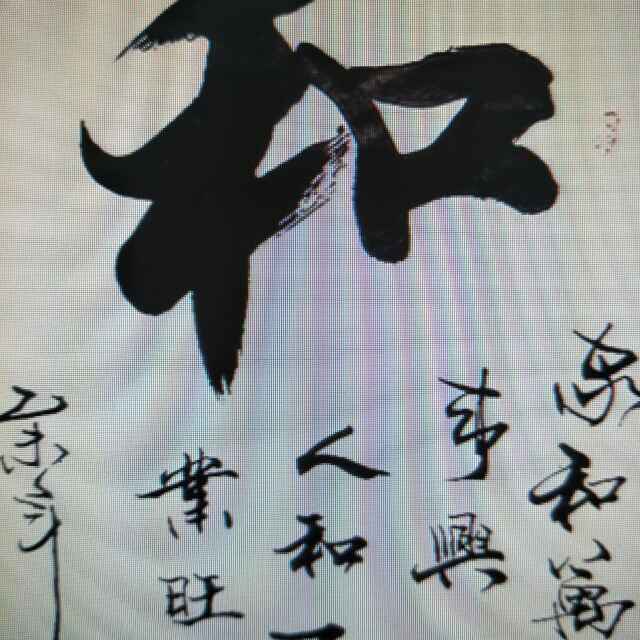 和
家和萬
事興
人和
業旺